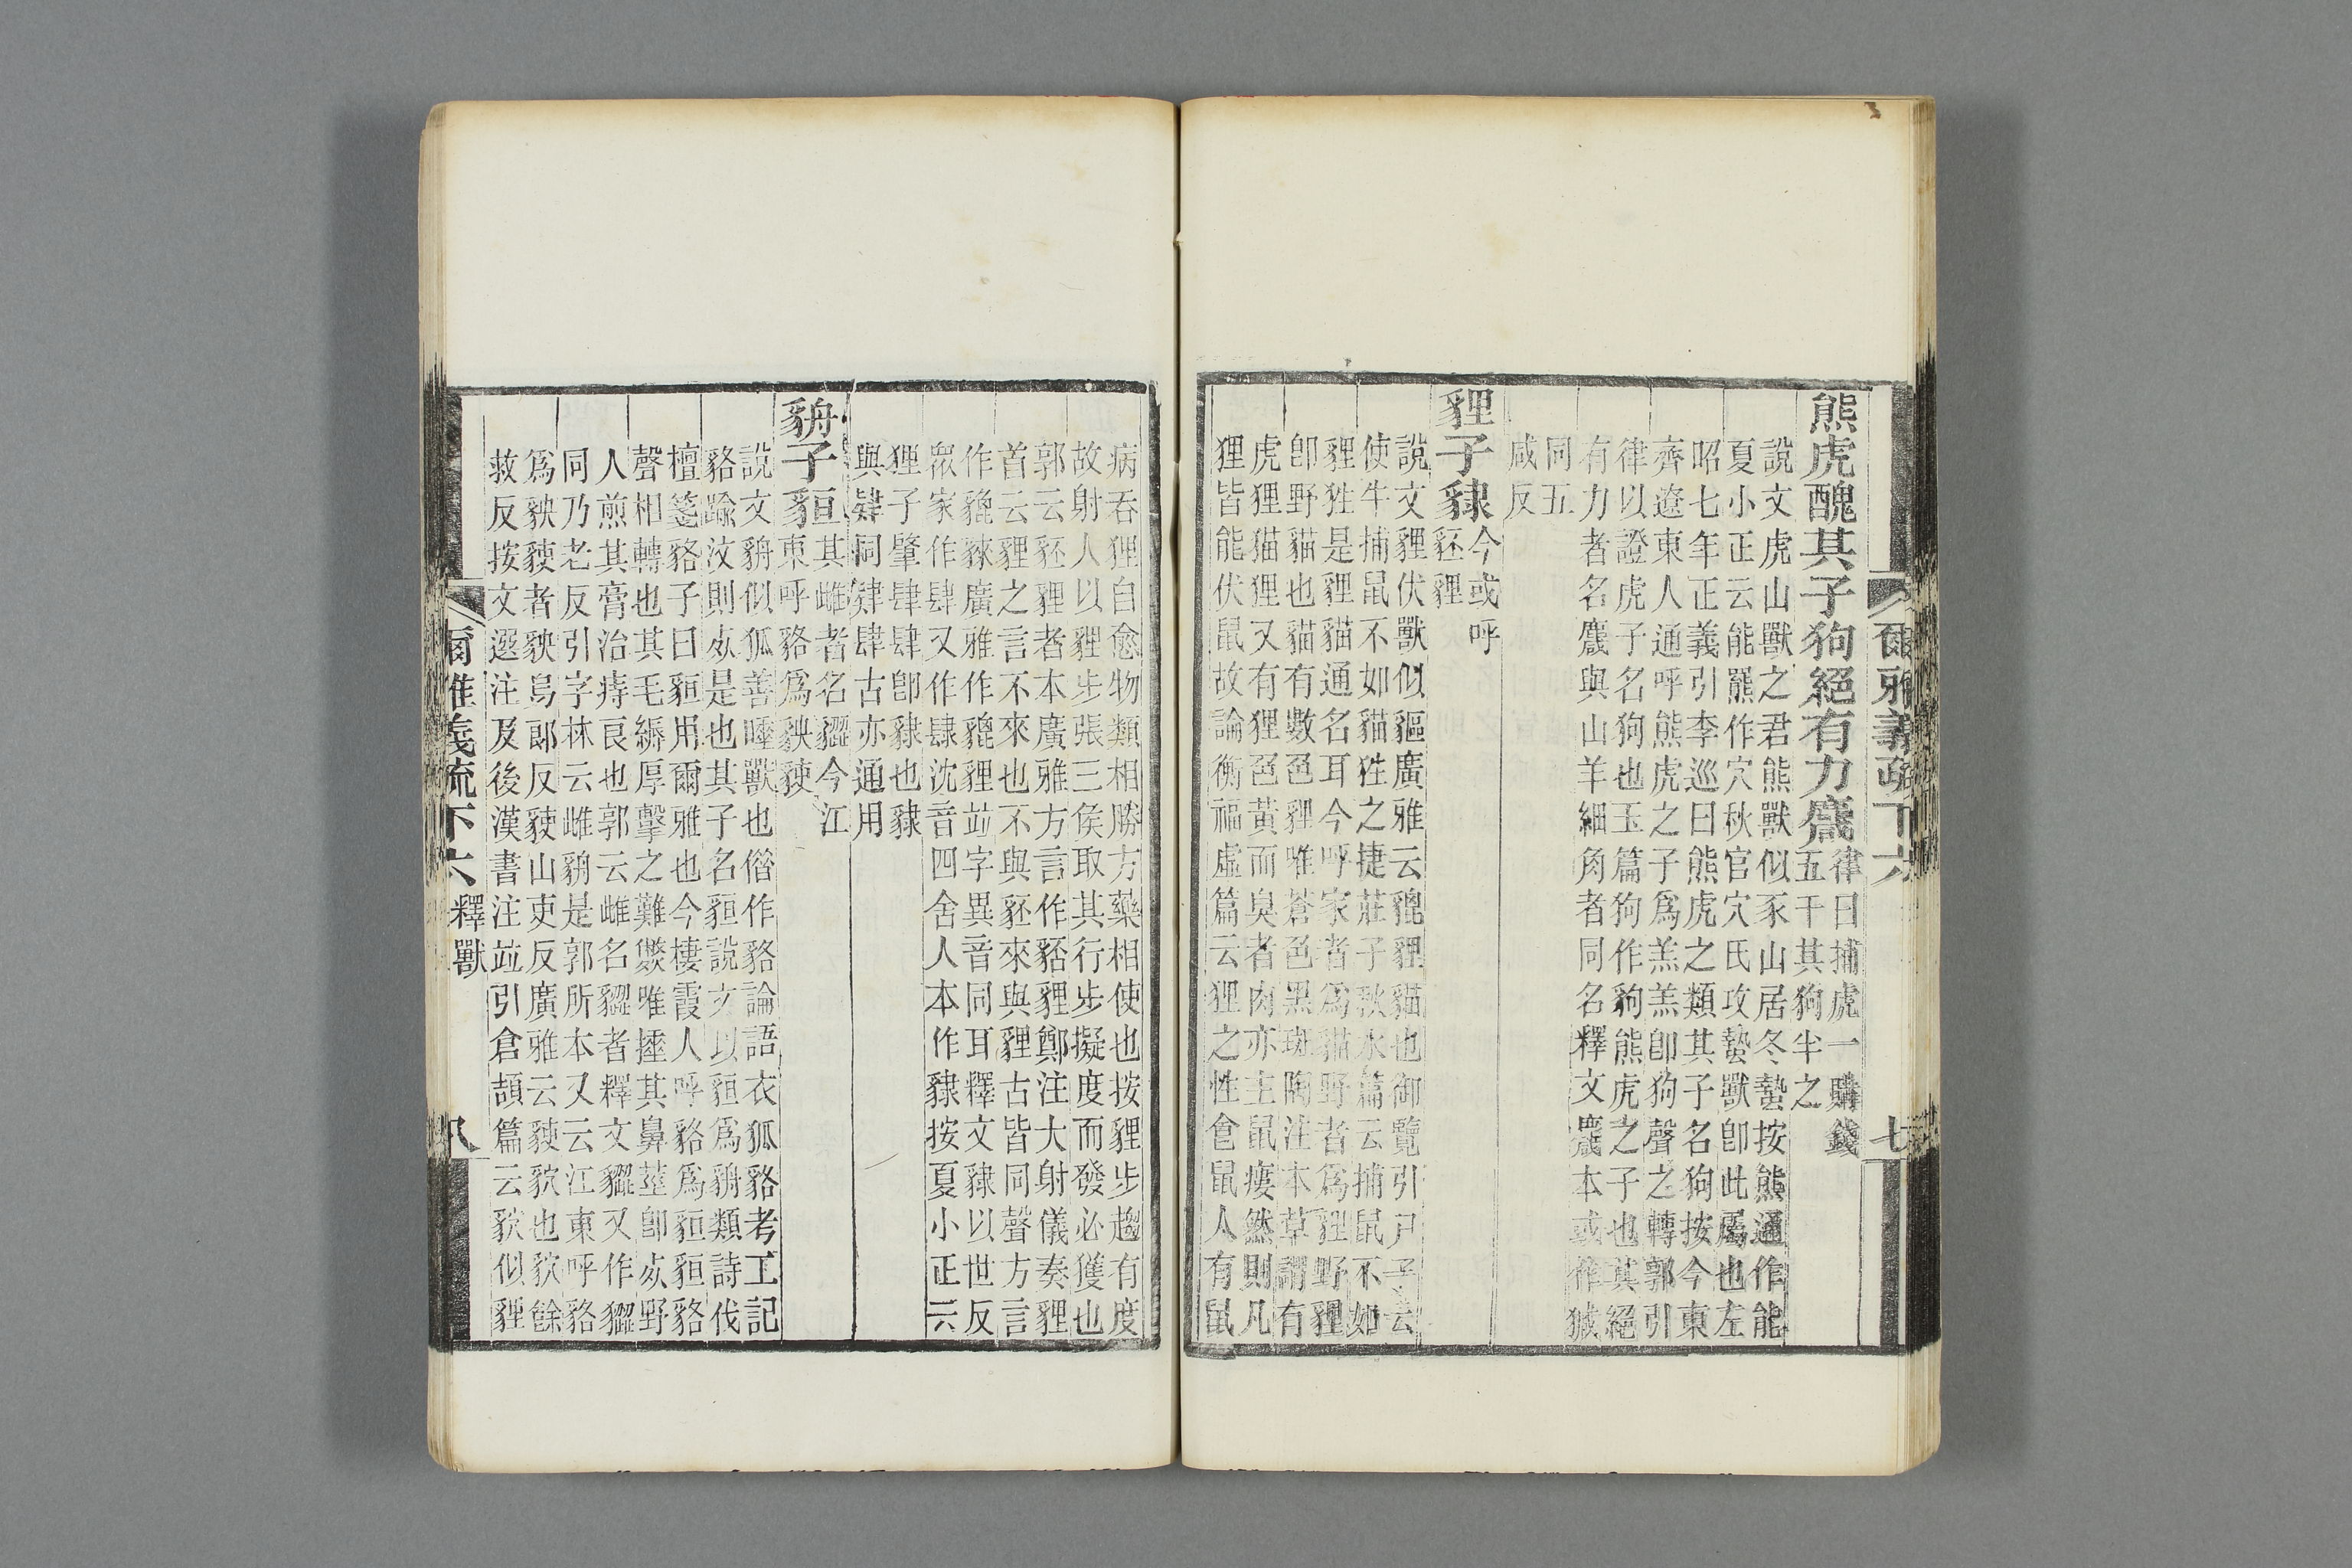 爾雅義疏下六 七
熊虎醜其子狗絕有力麙律曰捕虎一購錢
五千其狗半之
說文虎山獸之君熊獸似豕山居冬蟄按熊通作能
夏小正云能羆作穴秋官穴氏攻蟄獸卽此屬也左
昭七年正義引李巡曰熊虎之類其子名狗按今東
齊遼東人通呼熊虎之子爲羔羔卽狗聲之轉郭引
律以證虎子名狗也玉篇狗作豿熊虎之子也其絕
有力者名麙與山羊細角者同名釋文麙本或作㺂
同五
咸反
貍子貄今或呼
豾貍
說文貍伏獸似貙廣雅云豼貍貓也御覽引尸子云
使牛捕鼠不如貓狌之捷莊子秋水篇云捕鼠不如
貍狌是貍貓通名耳今呼家者爲貓野者爲貍野貍
卽野貓也貓有數色貍唯蒼色黑斑陶注本草謂有
虎狸猫狸又有狸色黃而臭者肉亦主鼠瘻然則凡
狸皆能伏鼠故論衡福虛篇云狸之性食鼠人有鼠
病吞狸自愈物類相勝方藥相使也按貍步趨有度
故射人以貍步張三侯取其行步擬度而發必獲也
郭云豾貍者本廣雅方言作貊貍鄭注大射儀奏貍
首云貍之言不來也不與豾來與貍古皆同聲方言
作豼䝲廣雅作豼貍竝字異音同耳釋文貄以世反
眾家作肆又作肄沈音四舍人本作貄按夏小正云
狸子肇肆肆卽貄也貄
與肄同肄肆古亦通用
貈子貆其雌者名䝏今江
東呼貉爲䝟䝠
說文貈似狐善睡獸也偕作貉論語衣狐貉考工記
貉踰汶則死是也其子名貆說文以貆爲貈類詩伐
檀箋貉子曰貆用爾雅也今棲霞人呼貉爲貆貆貉
聲相轉也其毛縟厚擊之難斃唯捶其鼻莖卽死野
人煎其膏治痔良也郭云雌名䝏者釋文䝏又作㺜
同乃老反引字林云雌貈是郭所本又云江東呼貉
爲䝟䝠者䝟烏郎反䝠山吏反廣雅云䝠㺄也㺄餘
救反按文選注及後漢書注竝引倉頡篇云㺄似貍
爾雅義疏下六 釋獸 八